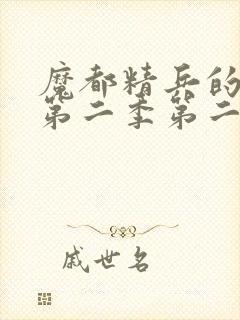 魔都精兵的
第二季第二
戚世名